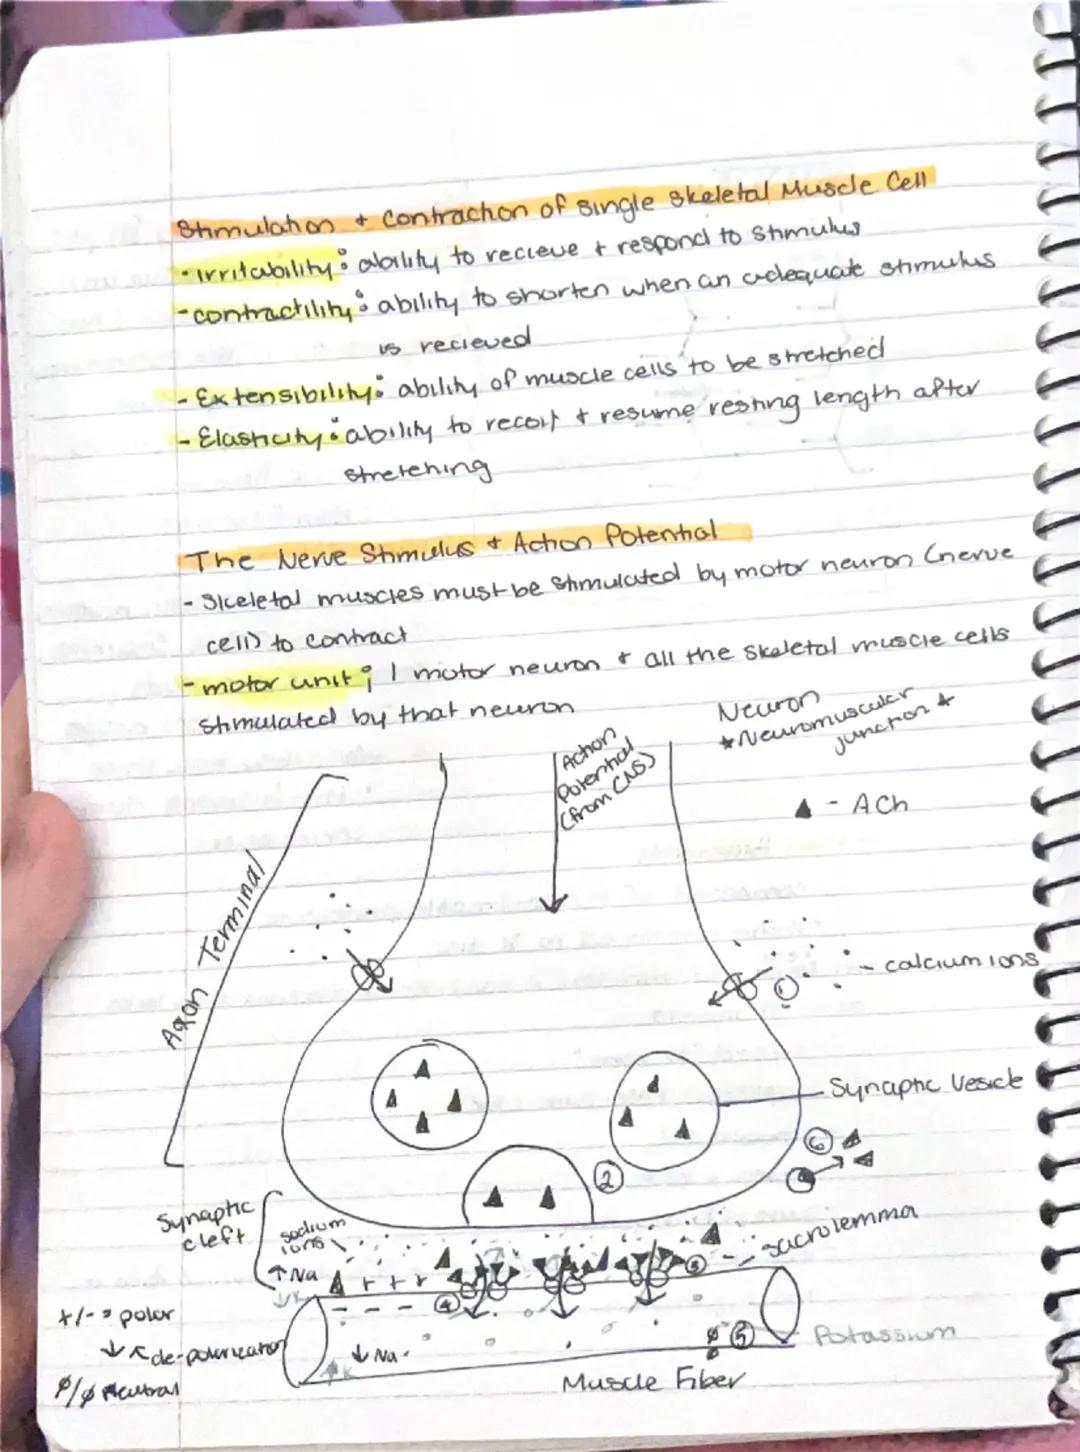 Stimulation + Contraction of single skeletal Muscle Cell
- irritability: ability to recieve + respond to stimulus
- contractility: ability to shorten when an adequate stimulus
is recieved
- Extensibility: ability of muscle cells to be stretched
- Elasticity: ability to recoil + resume resting length after
stretching
The Nerve Stimulus + Action Potential
- Skeletal muscles must be stimulated by motor neuron (nerve
cell) to contract
- motor unit; 1 motor neuron + all the skeletal muscle cells
stimulated by that neuron
Neuron
*Neuromuscular
junction*
Action
Potential
(from CNS)
▲ - ACh
Axon Terminal
- calcium ions
1
Synaptic Vesicle
2
6
Synaptic
cleft
sodium
ions
sacrolemma
↑Na
+ + +
3
↓K
- - - -
4
+/- = polar
↓ de-polarization
↓Na
↑K
ø/ø Neutral
5
Potassium
Muscle Fiber